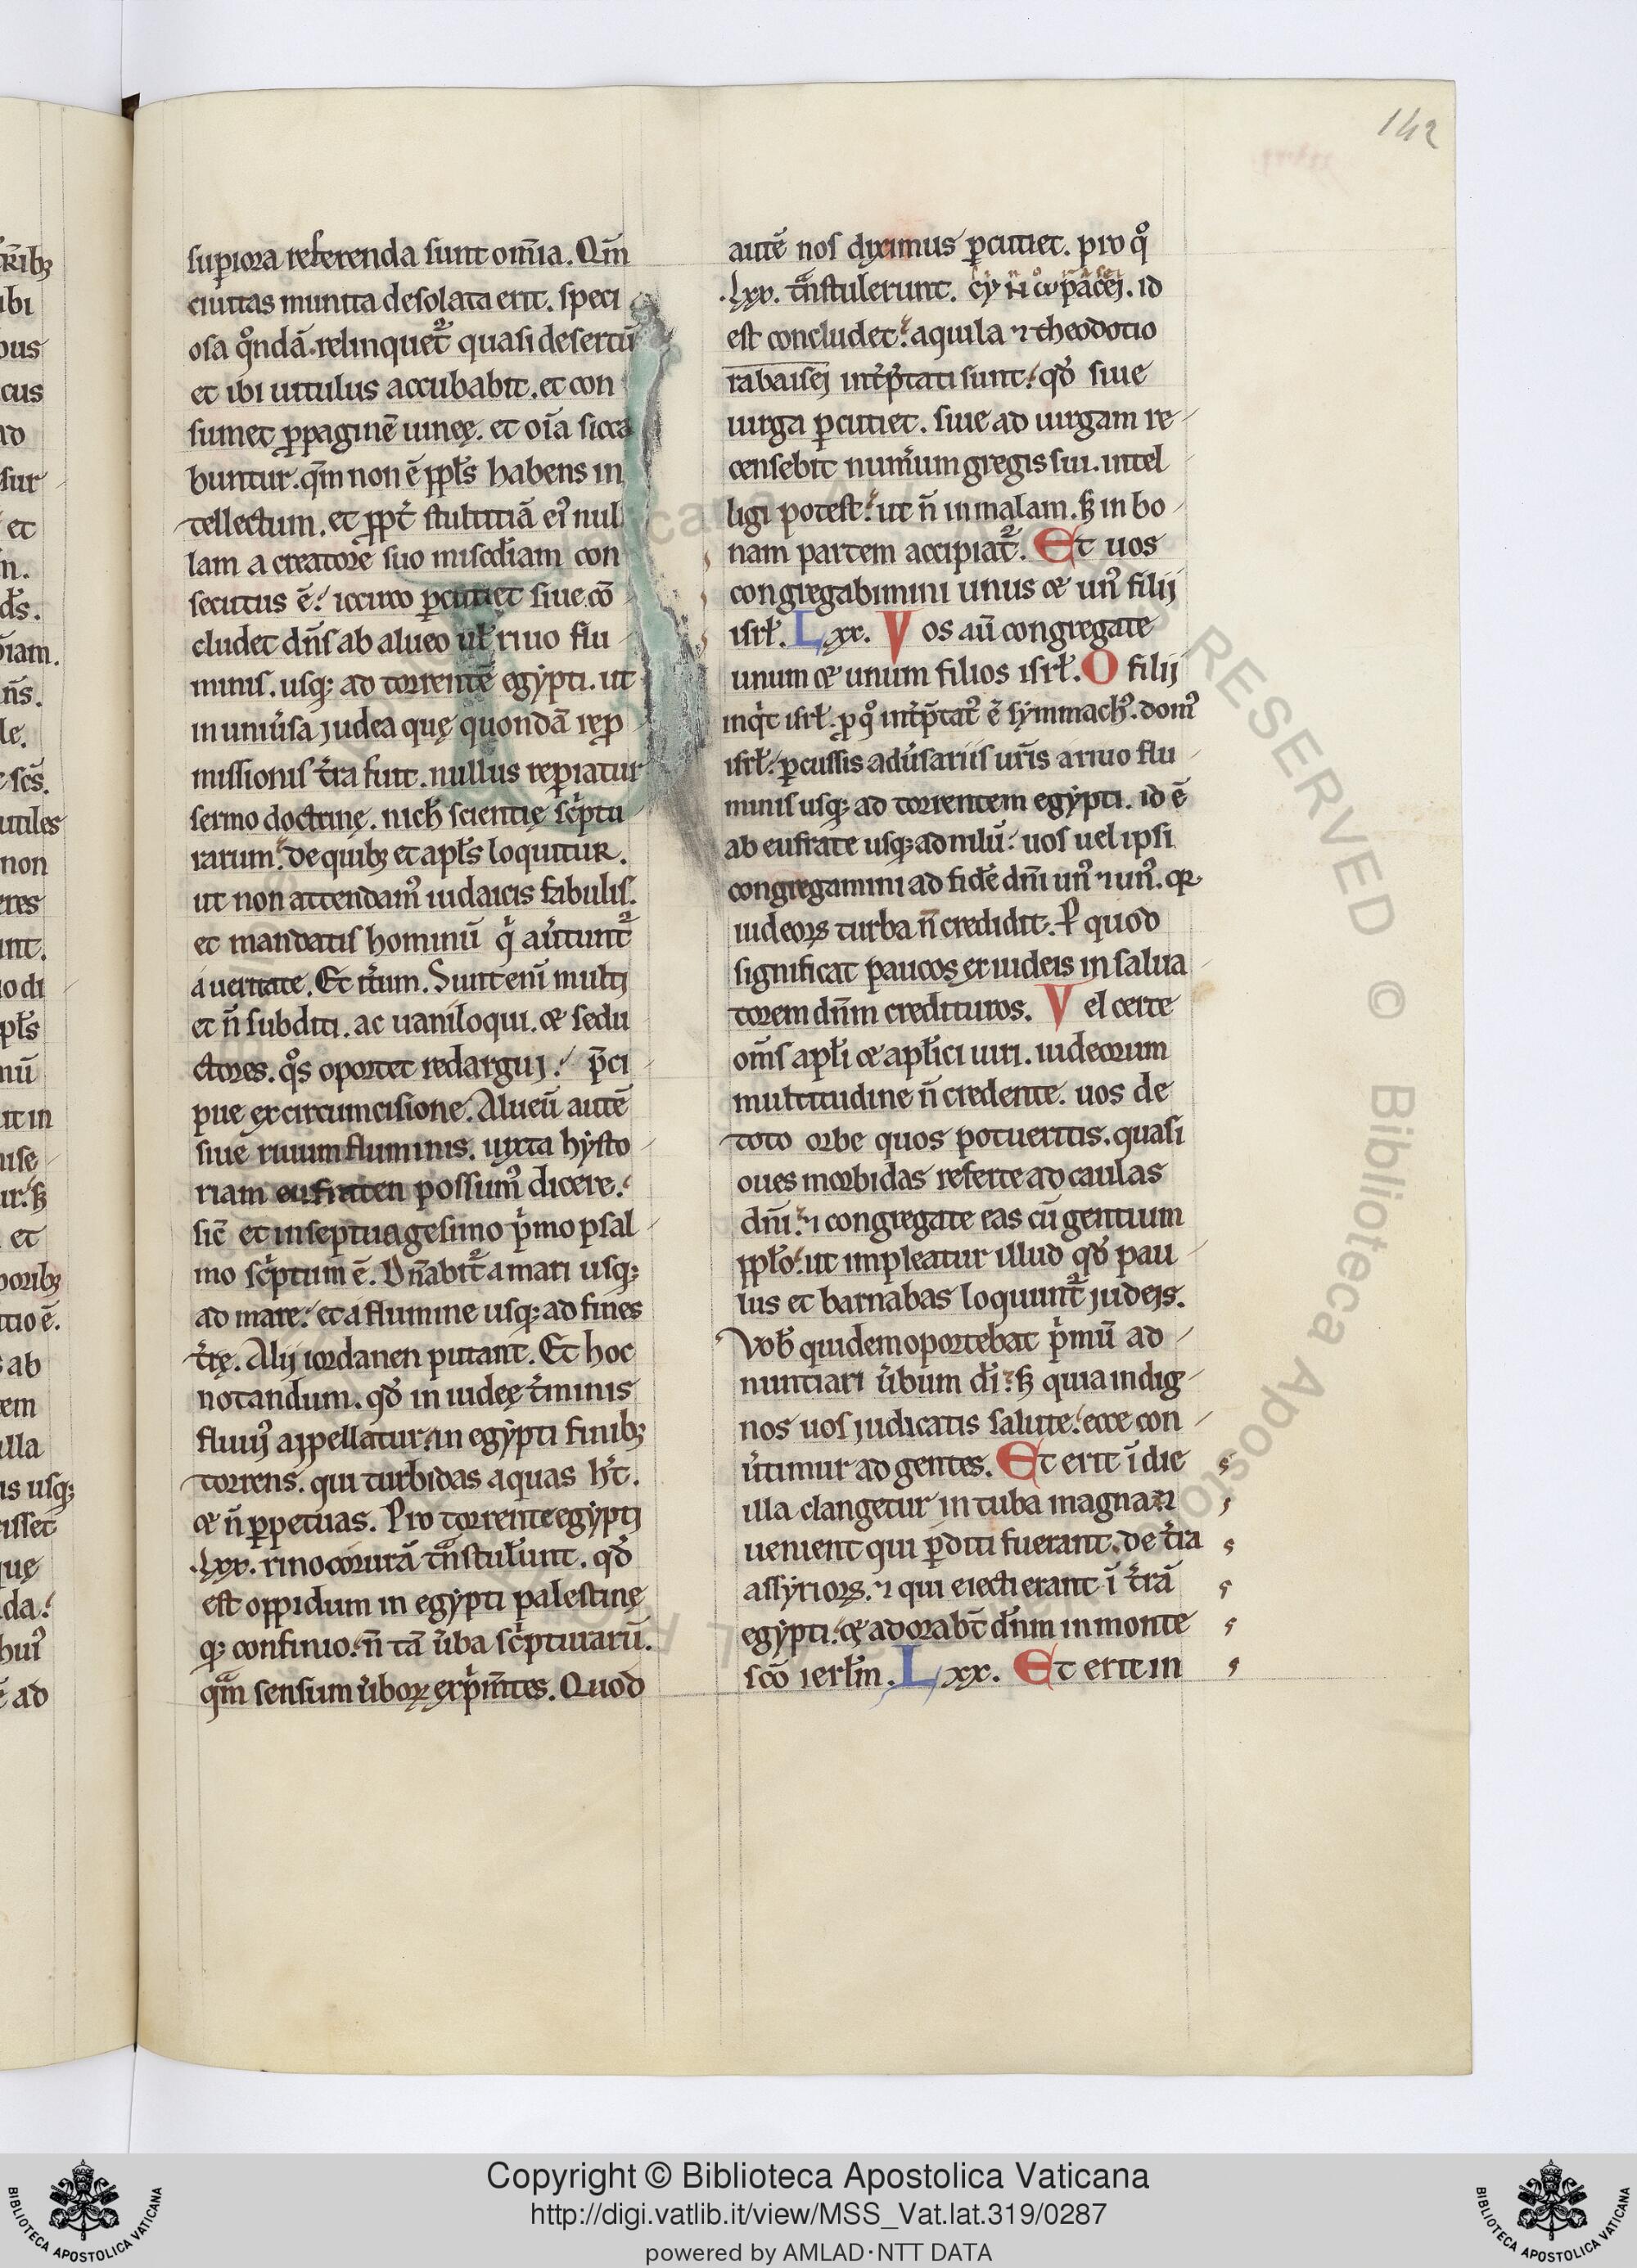 142
sup̱iora referenda sunt om̄ia. Qm̄
ciuitas munita desolata erit. speci
osa qͦndā. relinquet᷑ quasi desertū
et ibi uitulus accubabit. et con
sumet ꝓpaginē uineę. et oīa sicca
buntur. qm̄ non ē ppl̄s habens in
tellectum. et ꝓpt̄ stultitiā eiꝰ nul
lam a creatore suo misc̄diam con
secutus ē. iccirco ꝑcutiet siue cō
cludet dn̄s ab alueo uł riuo flu
minis. usq; ad torrentē egypti. ut
in uniu̓sa judea quę quondā rep̱
missionis t̓ra fuit. nullus rep̱iatur
sermo doctrinę. nich̄ scientię sc̓ptu
rarum. de quibꝫ et apl̄s loquitur.
ut non attendamꝰ iudaicis fabulis.
et mandatis hominū qͥ au̓tunt᷑
a ueritate. Et it̓um. Sunt enī multj
et n̄ subditi. ac uaniloqui. ⁊ sedu
ctores. qͦs oportet redarguj. p̄ci
pue ex circumcisione. Alueū autē
siue riuum fluminis. iuxta hysto
riam eufraten possumꝰ dicere.
sic̄ et in septuagesimo pͥmo psal
mo scͥptum ē. Dn̄abit᷑ a mari usq;
ad mare. et a flumine usq; ad fines
t̓rę. Alij iordanen putant. Et hoc
notandum. qd̄ in iudeę t̓minis
fluuiꝰ appellatur. in egypti finibꝫ
torrens. qui turbidas aquas h̄t.
⁊ n̄ ꝑpetuas. Pro torrente egyptj
.lxx. rinocorurā tᷓnstul̄unt. qd̄
est oppidum in egypti palestinę
q; confinio. n̄ tā u̓ba scͥpturarū.
qᷓm sensum u̓boꝝ expͥm̄tes. Quod
autē nos diximus ꝑcutiet. pro qͦ
.lxx. tᷓnstulerunt. id
est concludet. aquila ⁊ theodotio
rabaisej int̓p̄tati sunt. qd̄ siue
uirga ꝑcutiet. siue ad uirgam re
censebit num̓um gregis sui. intel
ligi potest. ut n̄ in malam. sꝫ in bo
nam partem accipiat᷑. Et uos
congregabimini unus ⁊ unꝰ filij
isrł. Lxx. Vos aū congregate
unum ⁊ unum filios isrł. O filij
inqͥt isrł. ꝓ qͦ int̓p̄tatꝰ ē symmachꝰ. domꝰ
isrł. ꝑcussis adu̓sariis ur̄is a riuo flu
minis usq; ad torrentem egypti. id ē
ab eufrate usq; ad nilū. uos uel ipsi
congregamini ad fidē dn̄i unꝰ ⁊ unꝰ. qꝛ
iudeoꝝ turba n̄ credidit. P quod
significat paucos ex iudeis in salua
torem dn̄m credituros. Vel certe
om̄s apl̄i ⁊ apl̄ici uiri. iudeorum
multitudine n̄ credente. uos de
toto orbe quos potueritis. quasi
oues morbidas referte ad caulas
dn̄i. ⁊ congregate eas cū gentium
ppl̄o. ut impleatur illud qd̄ pau
lus et barnabas loquunt᷑ judejs.
Vob̄ quidem oportebat pͥmū ad
nuntiari u̓bum dī. sꝫ quia indig
nos uos judicatis salute. ecce con
u̓timur ad gentes. Et erit ī die
illa clangetur in tuba magna. ⁊
uenient qui ꝑditi fuerant. de t̓ra
assyrioꝝ. ⁊ qui eiecti erant ī t̓rā
egypti. ⁊ adorabt̄ dn̄m in monte
sc̄o ierl̄m. Lxx. Et erit in
Copyright © Biblioteca Apostolica Vaticana
http://digi.vatlib.it/view/MSS_Vat.lat.319/0287
powered by AMLAD·NTT DATA
BIBLIOTECA APOSTOLICA VATICANA
BIBLIOTECA APOSTOLICA VATICANA